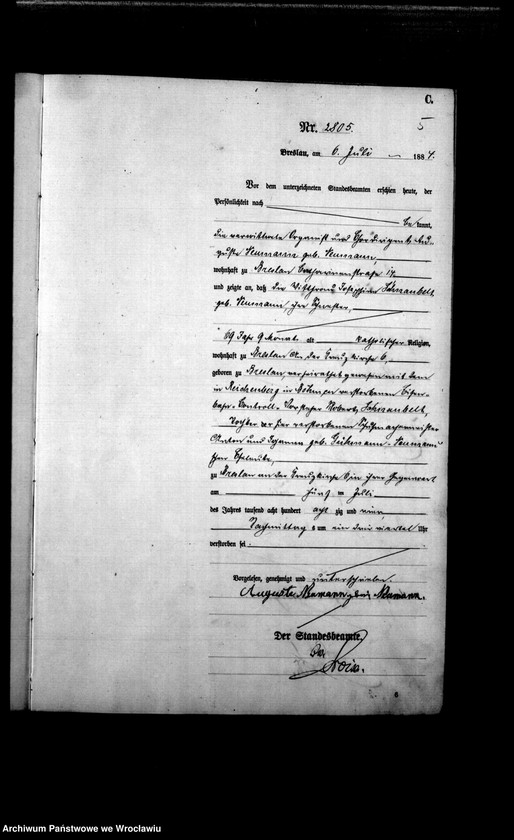 C.
Nr. 2805.
5
Breslau, am 6. Juli 1884.
Vor dem unterzeichneten Standesbeamten erschien heute, der
Persönlichkeit nach
bekannt,
die verwittwete Organist und Chordirigent Au-
guste Neumann geb. Neumann,
wohnhaft zu Breslau Catharinenstraße 17
und zeigte an, daß die Wittfrau Josephine Schnaubelt,
geb. Neumann, ihre Schwester,
69 Jahr 9 Monate alt katholischer Religion,
wohnhaft zu Breslau An der Kreuzkirche 6,
geboren zu Breslau, verheirathet gewesen mit dem
in Reichenberg in Böhmen verstorbenen Eisen-
bahn-Controll-Vorsteher Robert Schnaubelt,
Tochter der hier verstorbenen Schuhmachermeister
und Johanna geb. Neumann
Eheleute,
zu Breslau an der Kreuzkirche 6 in ihrer Gegenwart
am fünf ten Juli
des Jahres tausend acht hundert acht zig und vier
Nachmittag s um ein drei viertel Uhr
verstorben sei.
Vorgelesen, genehmigt und unterschrieben
Auguste Neumann geb. Neumann.
Der Standesbeamte.
6
Archiwum Państwowe we Wrocławiu